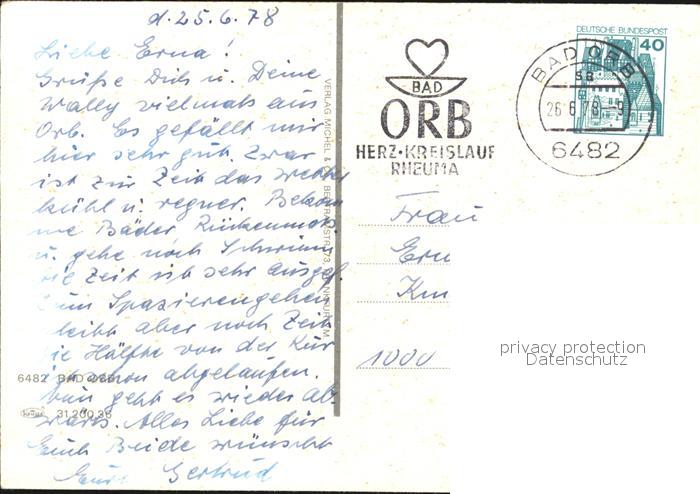 d. 25.6.78
Liebe Erna!
Grüße Dich u. Deine
Wally vielmals aus
Orb. Es gefällt mir
hier sehr gut. Zwar
ist zur Zeit das Wetter
kühl u. regner. Bekom
me Bäder, Rückenmass.
u. gehe noch Schwimm
die Zeit ist sehr ausgef.
Zum Spazierengehen
bleibt aber noch Zeit
die Hälfte von der Kur
ist schon abgelaufen.
Nun geht es wieder ab
wärts. Alles Liebe für
Euch Beide wünscht
Eure Gertrud
6482 BAD ORB
31 200 38
VERLAG MICHEL &
DEUTSCHE BUNDESPOST
40
BAD ORB
SB
26.6.78-9
6482
BAD
ORB
HERZ·KREISLAUF
RHEUMA
Frau
Ern
Km
1000
privacy protection
Datenschutz